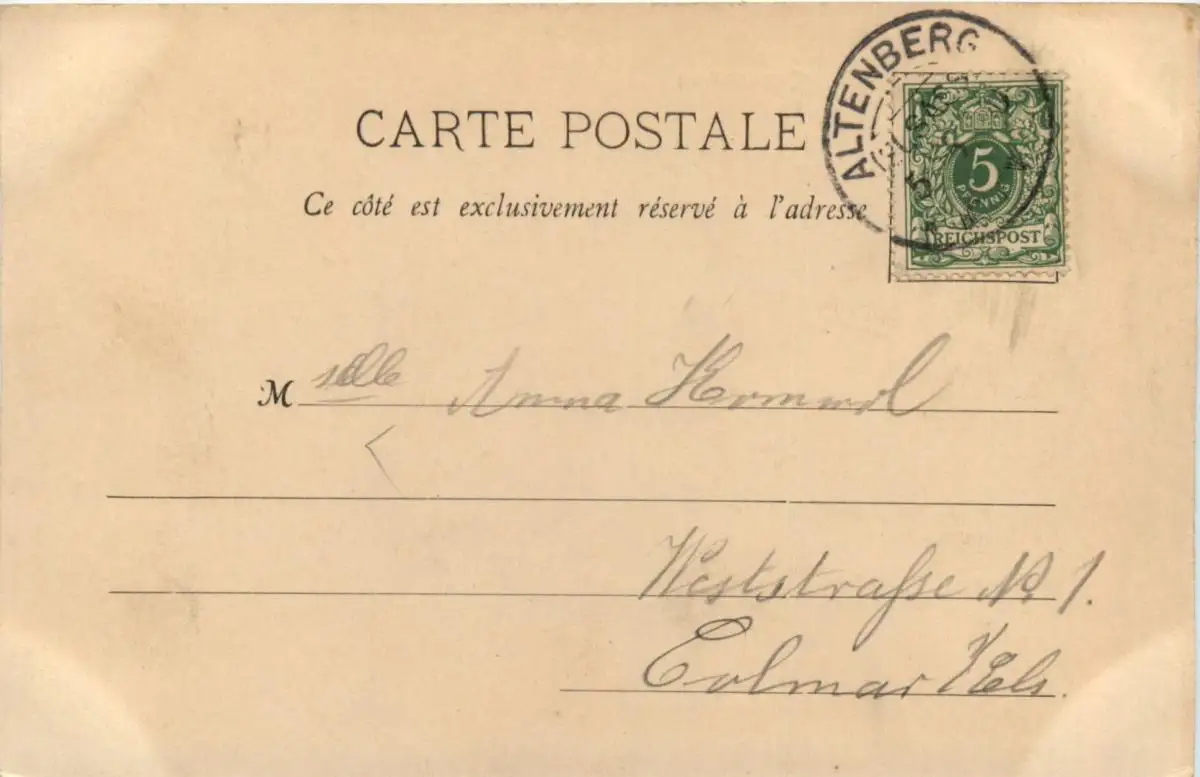 CARTE POSTALE
Ce côté est exclusivement réservé à l'adresse
ALTENBERG
5
PFENNIG
REICHSPOST
M selle Anna
Weststraſse No 1.
Colmar i/Els.